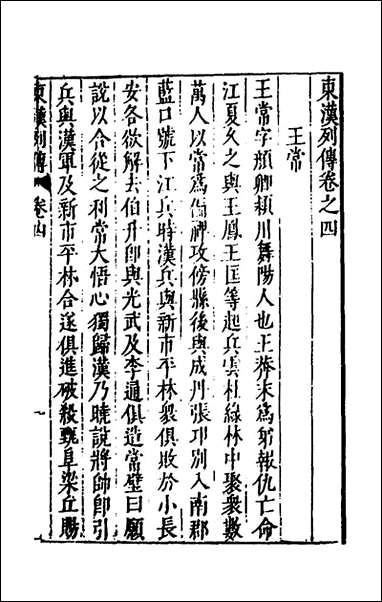 東漢列傳卷之四
王常
王常字顏卿潁川舞陽人也王莽末為弟報仇亡命
江夏久之與王鳳王匡等起兵雲杜綠林中聚衆數
萬人以常爲偏裨攻傍縣後與成丹張卭別入南郡
藍口號下江兵時漢兵與新市平林衆俱敗於小長
安各欲解去伯升卽與光武及李通俱造常壁曰願
說以合從之利常大悟心獨歸漢乃曉說將帥卽引
兵與漢軍及新市平林合遂俱進破殺甄阜梁丘賜
東漢列傳 卷四 一